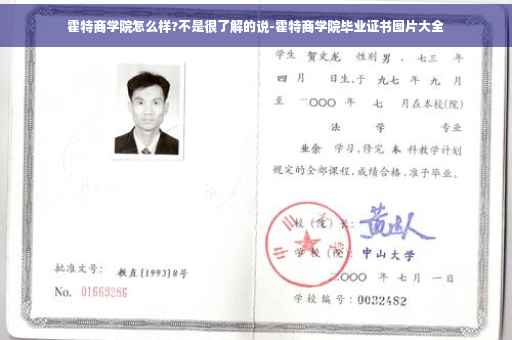 霍特商学院怎么样?不是很了解的说-霍特商学院毕业证书图片大全
学生 贺文龙 性别 男 、七三 年
四 月 日生,于 九七 年 九 月
至 二〇〇〇 年 七 月在本校(院)
法 学 专业
业余 学习,修完 本 科教学计划
规定的全部课程,成绩合格,准予毕业。
校 (院) 长:
学 校 (院): 中山大学
二〇〇〇 年 七 月 一 日
学校编号: 0032482
批准文号: 教直[1993]8号
No. 01669286